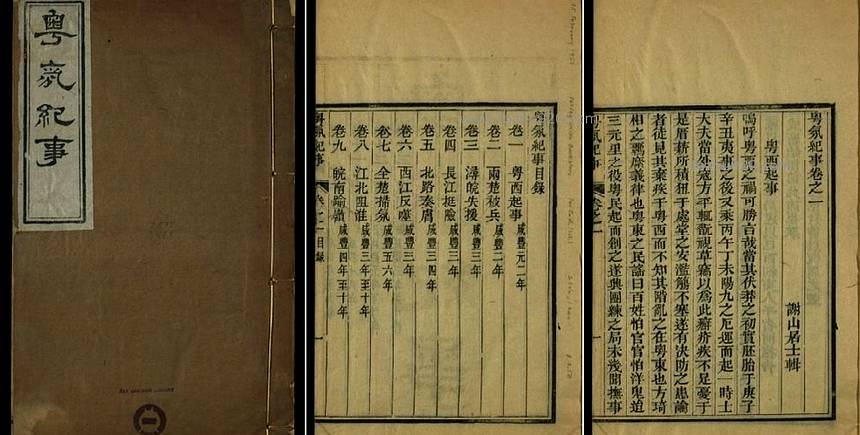 粵氛紀事
粵氛紀事目錄
卷一 粵西起事 咸豐元二年
卷二 兩楚被兵 咸豐二年
卷三 潯皖失援 咸豐三年
卷四 長江挺險 咸豐三年
卷五 北路奏膚 咸豐三四年
卷六 西江反噬 咸豐三年
卷七 全楚掃氛 咸豐五六年
卷八 江北阻淮 咸豐三年至十年
卷九 皖南踰嶺 咸豐四年至十年
粵氛紀事 卷之一目錄
粵氛紀事卷之一
謝山居士輯
粵西起事
嗚呼粵西之禍可勝言哉當其伏莽之初實胚胎于庚子
辛丑夷事之後又乘丙午丁未陽九之厄運而起一時士
大夫當外寇方平輒翫視草竊以為此癬疥疾不足憂于
是厝薪所積狃于處堂之安濫觴不塞遂有決防之患論
者徒見其棄疾于粵西而不知其階亂之在粵東也方琦
相之義律也粵東之民謠曰百姓怕官官怕洋鬼迨
三元里之役粵民起而創之遂興團練之局未幾聞撫事
粵氛紀事 卷之一